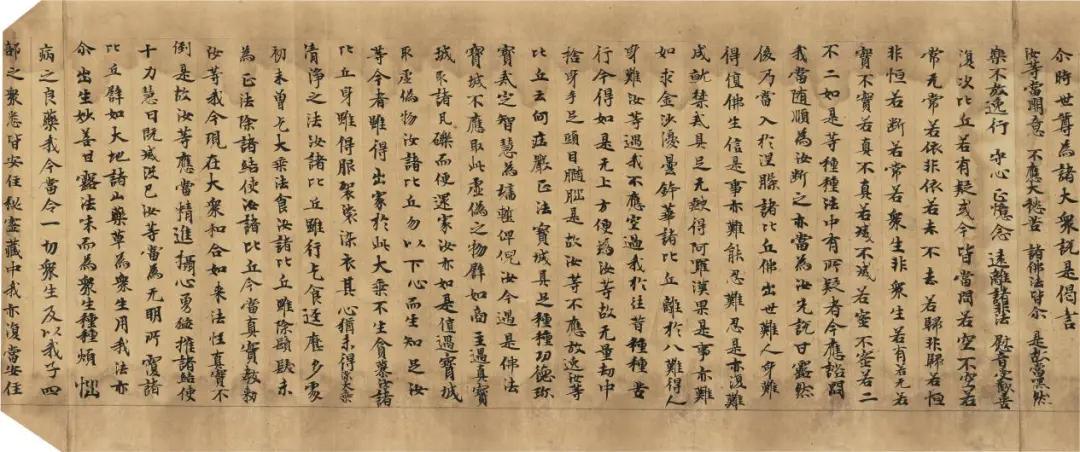 尒時世尊為諸大衆說是偈言
汝等當開意 不應大愁苦 諸佛法皆尒 是故當嘿然
樂不放逸行 守心正憶念 遠離諸非法 慰意受歡喜
復次比丘若有疑或今皆當問若空不空若
常无常若依非依若去不去若歸非歸若恒
非恒若斷若常若衆生非衆生若有若无若
實不實若真不真若滅不滅若蜜不蜜若二
不二如是等種種法中有所疑者今應諮問
我當随順為汝斷之亦當為汝先說甘露然
後乃當入於涅槃諸比丘佛出世難人身難
得值佛生信是事亦難能忍難忍是亦復難
成就禁戒具足无缺得阿羅漢果是事亦難
如求金沙優曇鉢華諸比丘離於八難得人
身難汝等遇我不應空過我於往昔種種苦
行今得如是无上方便為汝等故无量劫中
捨身手足頭目髓腦是故汝等不應放逸汝等
比丘云何莊嚴正法寶城具足種種功德珎
寶戒定智慧為墻塹俾倪汝今遇是佛法
寶城不應取此虛偽之物譬如商主遇真寶
城取諸瓦礫而便還家汝亦如是值遇寶城
取虛偽物汝諸比丘勿以下心而生知足汝
等今者雖得出家於此大乘不生貪慕汝諸
比丘身雖得服袈裟染衣其心猶未得染大乘
清淨之法汝諸比丘雖行乞食逕歷多處
初未曾乞大乘法食汝諸比丘雖除鬚髮未
為正法除諸結使汝諸比丘今當真實教勅
汝等我今現在大衆和合如來法性真實不
倒是故汝等應當精進攝心勇猛摧諸結使
十力慧日既滅沒已汝等當為无明所覆諸
比丘譬如大地諸山藥草為衆生用我法亦
尒出生妙善甘露法味而為衆生種種煩惱
病之良藥我今當令一切衆生及以我子四
部之衆悉皆安住秘蜜藏中我亦復當安住